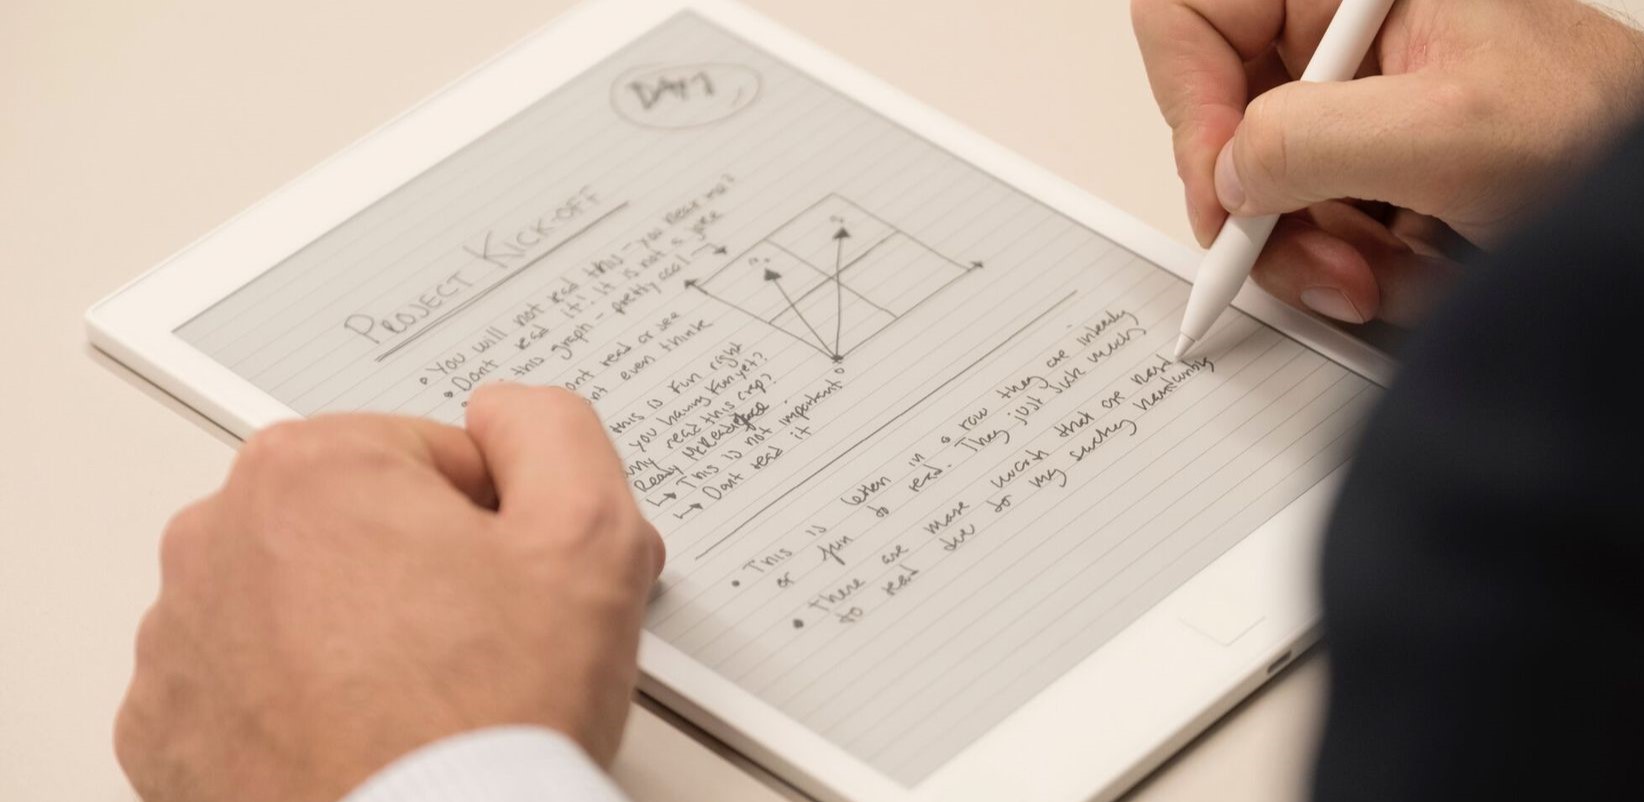 DAY 1
PROJECT KICK-OFF
• You will not read this - you hear me?
• Dont read it! It is not a joke
this graph - pretty cool →
ont read or see
nt even think
this is fun right
you having fun yet?
why read this crap?
Ready
↳ This is not important
↳ Dont read it
• This is letten in a row they are
or fun to read. They just suck much
• There are more words that are hard
to read due to my sucky handwriting